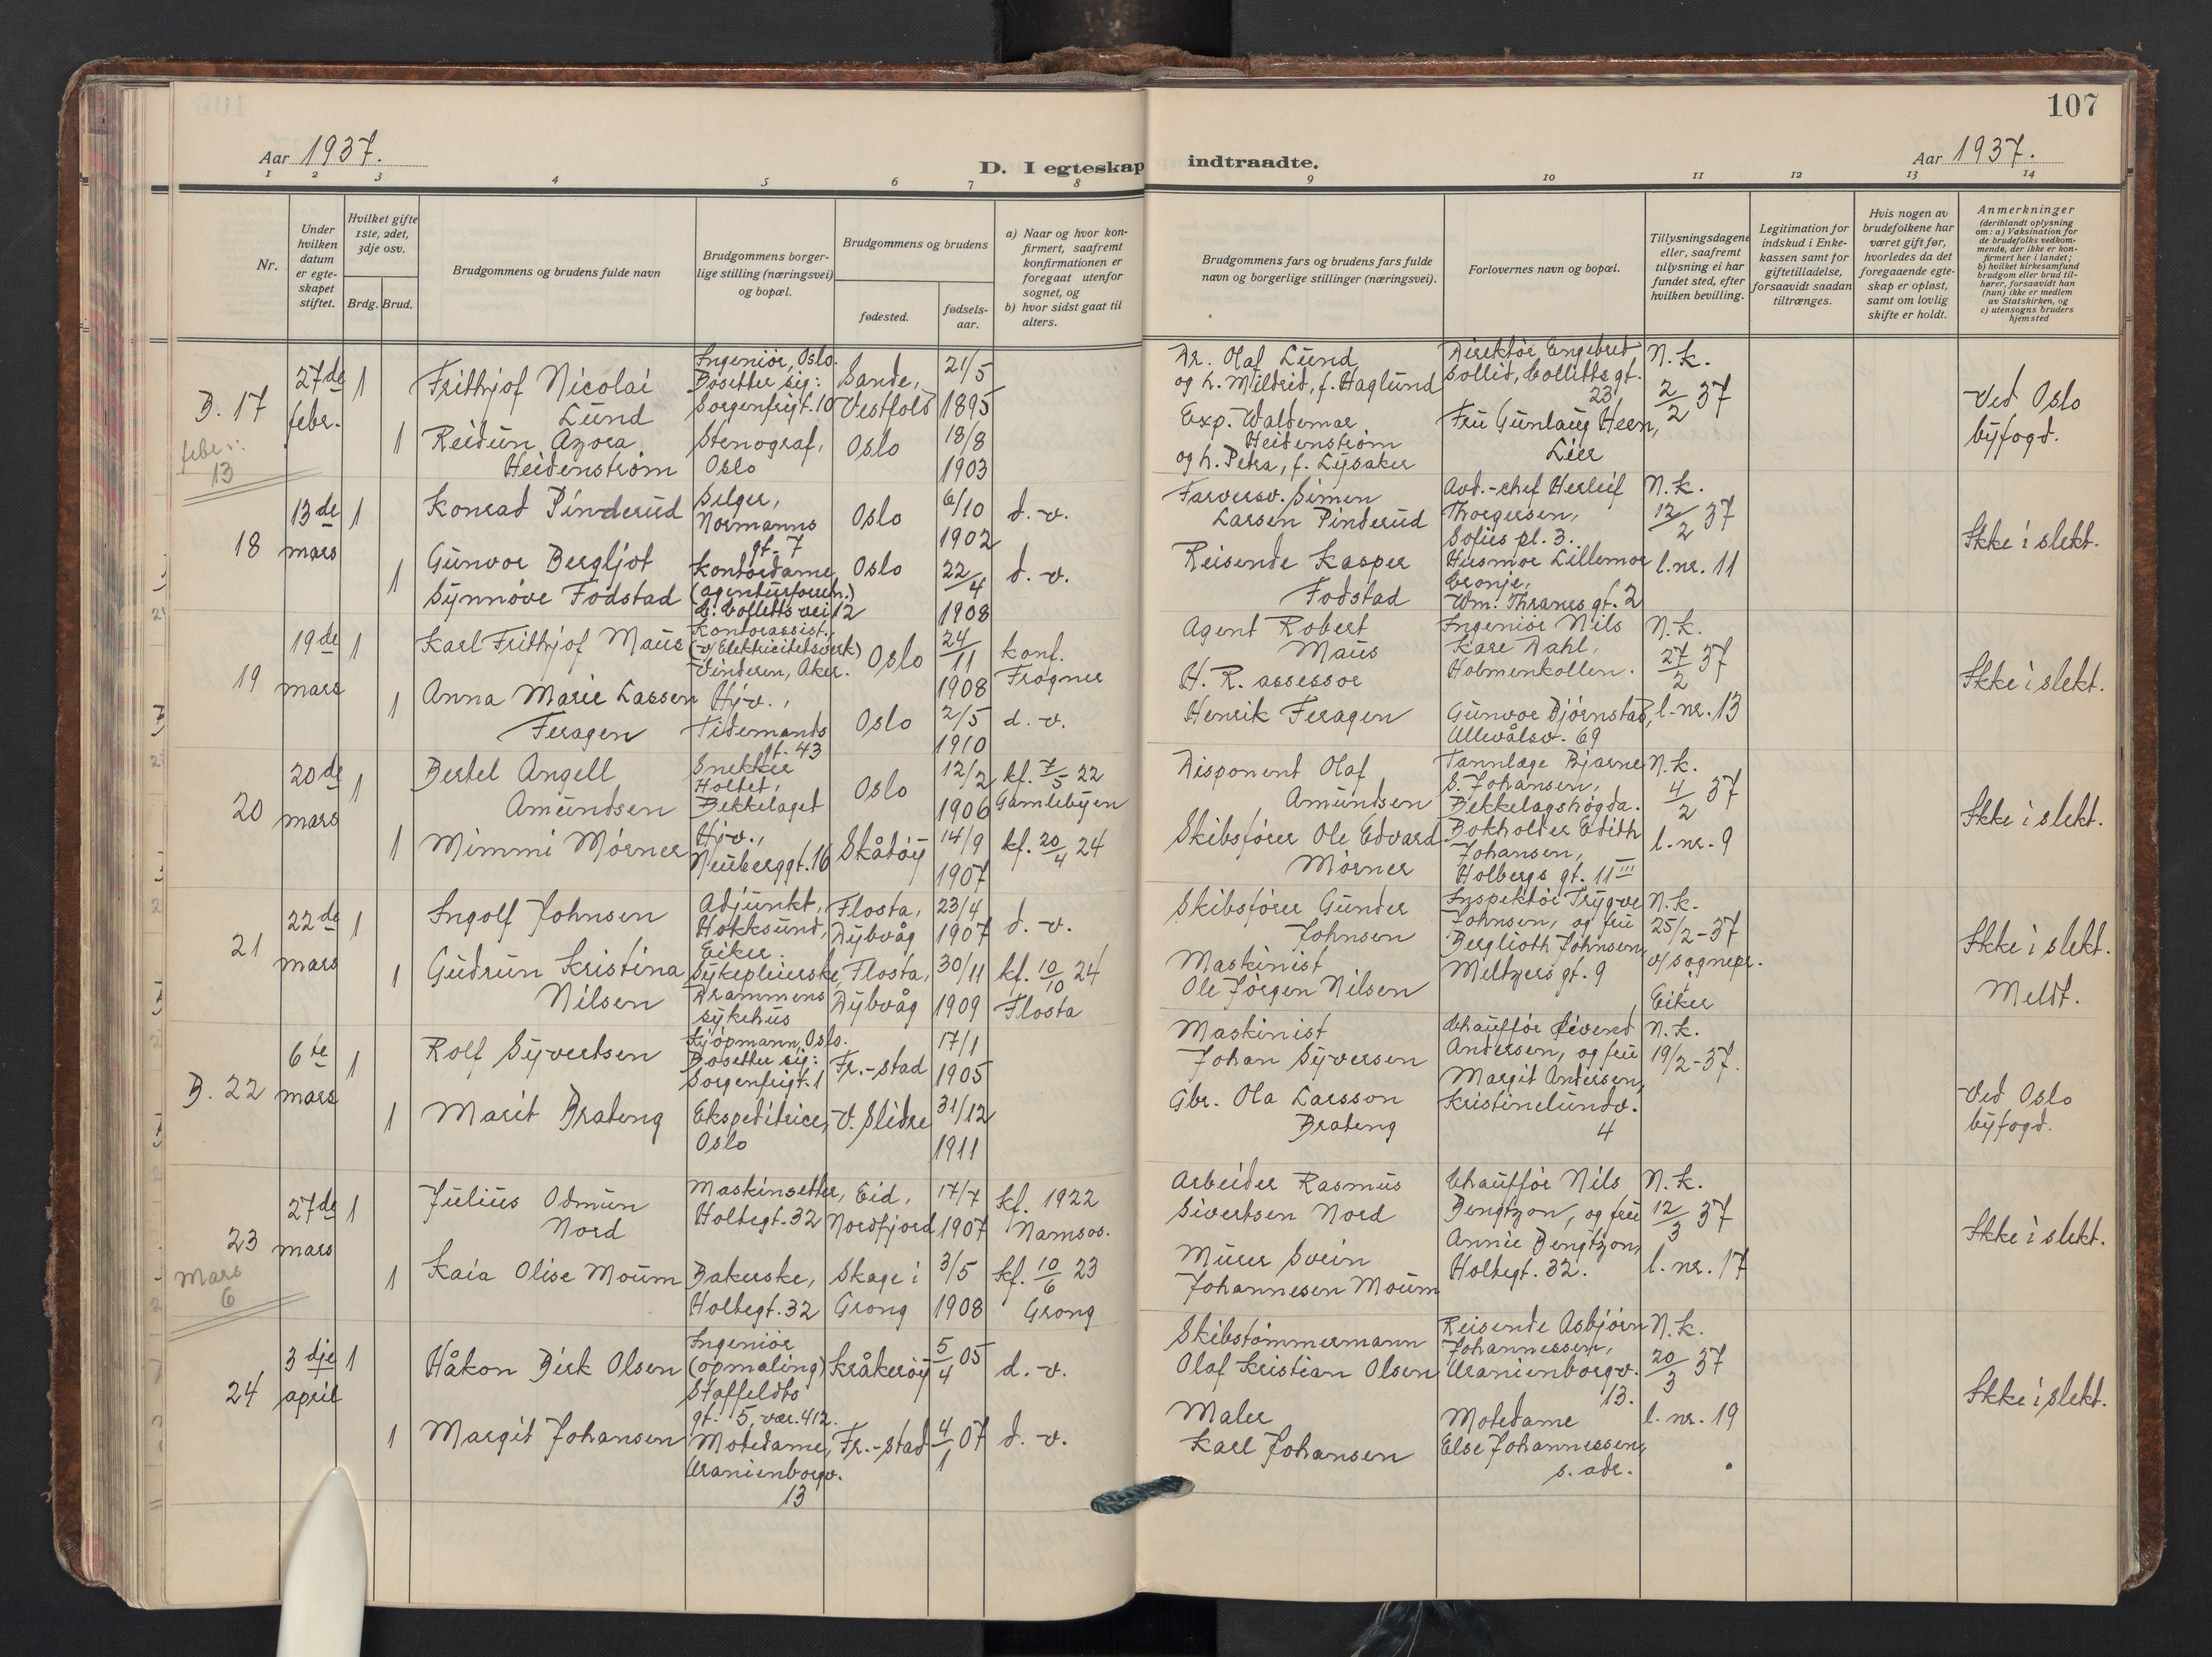 107
Aar 1937.
D. I egteskap indtraadte.
Aar 1937.
1 2 3 4 5 6 7 8 9 10 11 12 13 14
Nr.
Under hvilken datum er egteskapet stiftet.
Hvilket gifte 1ste, 2det, 3dje osv.
Brdg. Brud.
Brudgommens og brudens fulde navn
Brudgommens borgerlige stilling (næringsvei) og bopæl.
Brudgommens og brudens
fødested.
fødselsaar.
a) Naar og hvor konfirmert, saafremt konfirmationen er foregaat utenfor sognet, og
b) hvor sidst gaat til alters.
Brudgommens fars og brudens fars fulde navn og borgerlige stillinger (næringsvei).
Forlovernes navn og bopæl.
Tillysningsdagene eller, saafremt tillysning ei har fundet sted, efter hvilken bevilling.
Legitimation for indskud i Enkekassen samt for giftetilladelse, forsaavidt saadan tiltrænges.
Hvis nogen av brudefolkene har været gift før, hvorledes da det foregaaende egteskap er opløst, samt om lovlig skifte er holdt.
Anmerkninger
(deriblandt oplysning om: a) Vaksination for de brudefolks vedkommende, der ikke er konfirmert her i landet; b) hvilket kirkesamfund brudgom eller brud tilhører, forsaavidt han (hun) ikke er medlem av Statskirken, og c) utensogns bruders hjemsted
B. 17
27de febr.
1
Frithjof Nicolai Lund
Ingeniør, Oslo.
Bosetter sig:
Sorgenfrigt. 10
Sande, Vestfold
21/5 1895
Dr. Olaf Lund
og h. Mildrid, f. Haglund
Direktør Engebret
Sollid, Collettsgt. 23
N.k.
2/2 37
Ved Oslo byfogd.
1
Reidun Azora
Heidenstrøm
Stenograf,
Oslo
Oslo
18/8 1903
Exp. Waldemar
Heidenstrøm
og h. Petra, f. Lysaker
Fru Gunlaug Heen,
Lier
febr.:
13
18
13de mars
1
Konrad Pinderud
Selger,
Normanns gt. 7
Oslo
6/10 1902
d.-v.
Farversv. Simen
Larsen Pinderud
Avd.-chef Herleif
Thorgersen,
Sofies pl. 3.
N.k.
12/2 37
l.nr. 11
Ikke i slekt.
1
Gunvor Bergljot
Synnøve Fodstad
Kontordame
(agenturforretn.)
C. Colletts vei 12
Oslo
22/4 1908
d.-v.
Reisende Kasper
Fodstad
Husmor Lillemor
Cronje,
Wm. Thranes gt. 2
19
19de mars
1
Karl Frithjof Maus
Kontorassist.
(v/ Elektricitetsverk)
Vinderen, Aker.
Oslo
24/11 1908
konf.
Frogner
Agent Robert
Maus
Ingeniør Nils
Kåre Dahl,
Holmenkollen.
N.k.
27/2 37
l.-nr. 13
Ikke i slekt.
1
Anna Marie Lassen
Feragen
Hjv.,
Tidemands gt. 43
Oslo
2/5 1910
d.-v.
H. R. assessor
Henrik Feragen
Gunvor Bjørnstad,
Ullevålsv. 69
20
20de mars
1
Bertel Angell
Amundsen
Snekker
Holtet,
Bekkelaget
Oslo
12/2 1906
kf. 7/5 22
Gamlebyen
Disponent Olaf
Amundsen
Tannlæge Bjarne
S. Johansen,
Bekkelagshøgda.
N.k.
4/2 37
l.-nr. 9
Ikke i slekt.
1
Mimmi Mørner
Hjv.,
Neuberggt. 16
Skåtøy
14/9 1907
kf. 20/4 24
Skibsfører Ole Edvard
Mørner
Bokholder Edith
Johansen,
Holbergs gt. 11 III
21
22de mars
1
Ingolf Johnsen
Adjunkt,
Hokksund,
Eiker.
Flosta,
Dybvåg
23/4 1907
d.-v.
Skibsfører Gunder
Johnsen
Inspektør Trygve
Johnsen, og fru
Berglioth Johnsen,
Meltzers gt. 9
N.k.
25/2-37
v/ sognepr. i
Eiker
Ikke i slekt.
Meldt.
1
Gudrun Kristina
Nilsen
Sykepleierske,
Drammens
sykehus
Flosta,
Dybvåg
30/11 1909
kf. 10/10 24
Flosta
Maskinist
Ole Jørgen Nilsen
B. 22
6te mars
1
Rolf Syvertsen
Kjøpmann, Oslo.
Bosetter sig:
Sorgenfrigt. 1
Fr.-stad
17/1 1905
Maskinist
Johan Syversen
Chauffør Eivend
Andersen, og fru
Margit Andersen,
Kristinelundv. 4
N.k.
19/2-37.
Ved Oslo byfogd.
1
Marit Brateng
Ekspeditrice,
Oslo
V. Slidre
31/12 1911
Gbr. Ola Larsson
Brateng
23
27de mars
1
Julius Odmun
Nord
Maskinsetter,
Holtegt. 32
Eid,
Nordfjord
17/7 1907
kf. 1922
Namsos.
Arbeider Rasmus
Sivertsen Nord
Chauffør Nils
Bengtzon, og fru
Annie Bengtzon,
Holtegt. 32.
N.k.
12/3 37
l.-nr. 17
Ikke i slekt.
1
Kaia Olise Moum
Bakerske,
Holtegt. 32
Skage i
Grong
3/5 1908
kf. 10/6 23
Grong
Murer Svein
Johannesen Moum
Mars
6
24
3dje april
1
Håkon Birk Olsen
Ingeniør
(opmåling)
Staffeldts
gt. 5, vær. 412.
Kråkerøy
5/4 05
d.-v.
Skibstømmermann
Olaf Kristian Olsen
Reisende Asbjørn
Johannessen,
Uranienborgv. 13.
N.k.
20/3 37
l. nr. 19
Ikke i slekt.
1
Margit Johansen
Motedame,
Uranienborgv. 13
Fr.-stad
4/1 07
d.-v.
Maler
Karl Johansen
Motedame
Else Johannessen,
s. adr.